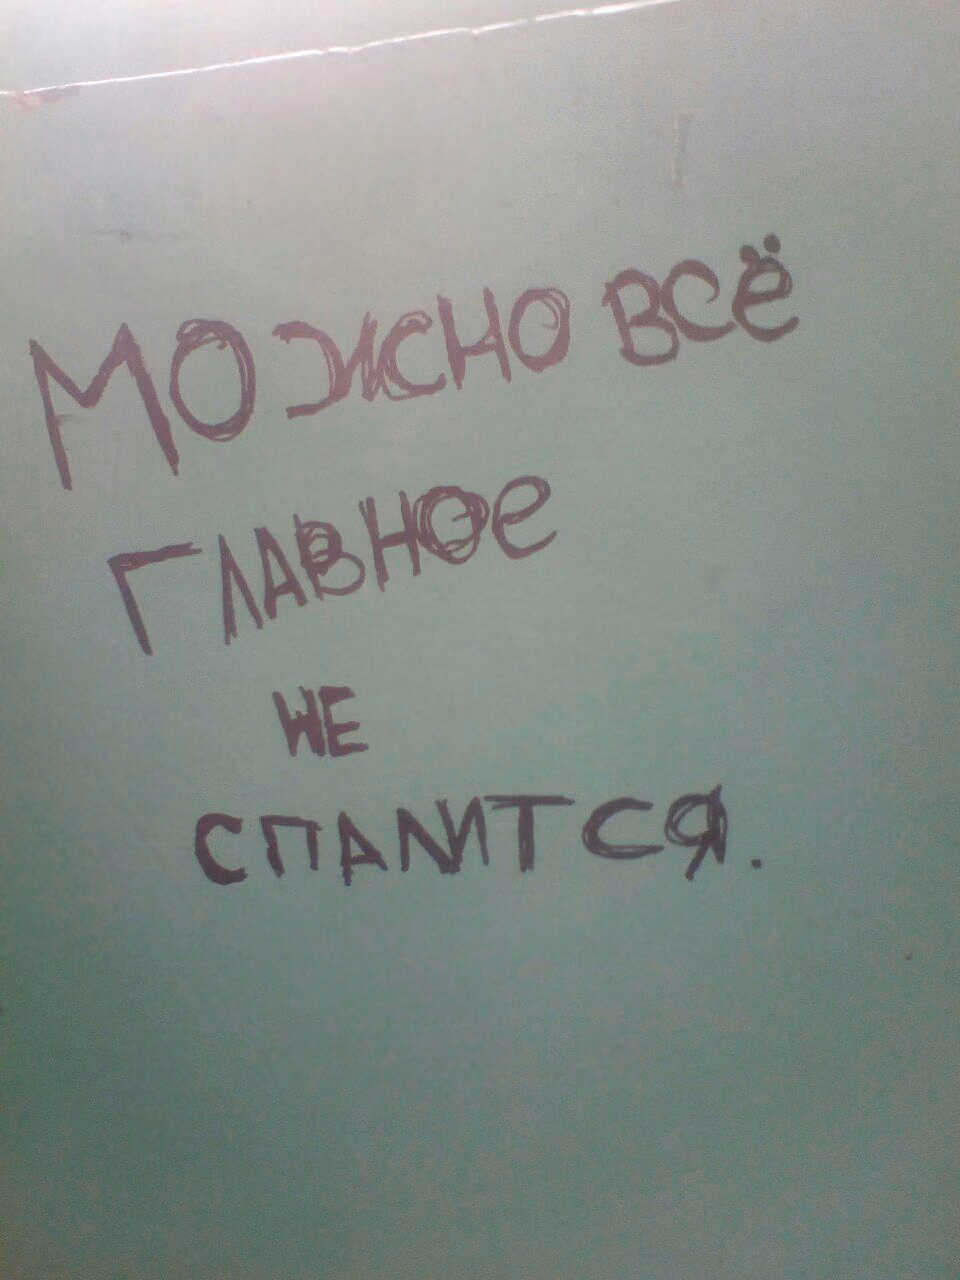 МОЖНО ВСЁ
ГЛАВНОЕ
НЕ
СПАЛИТСЯ.